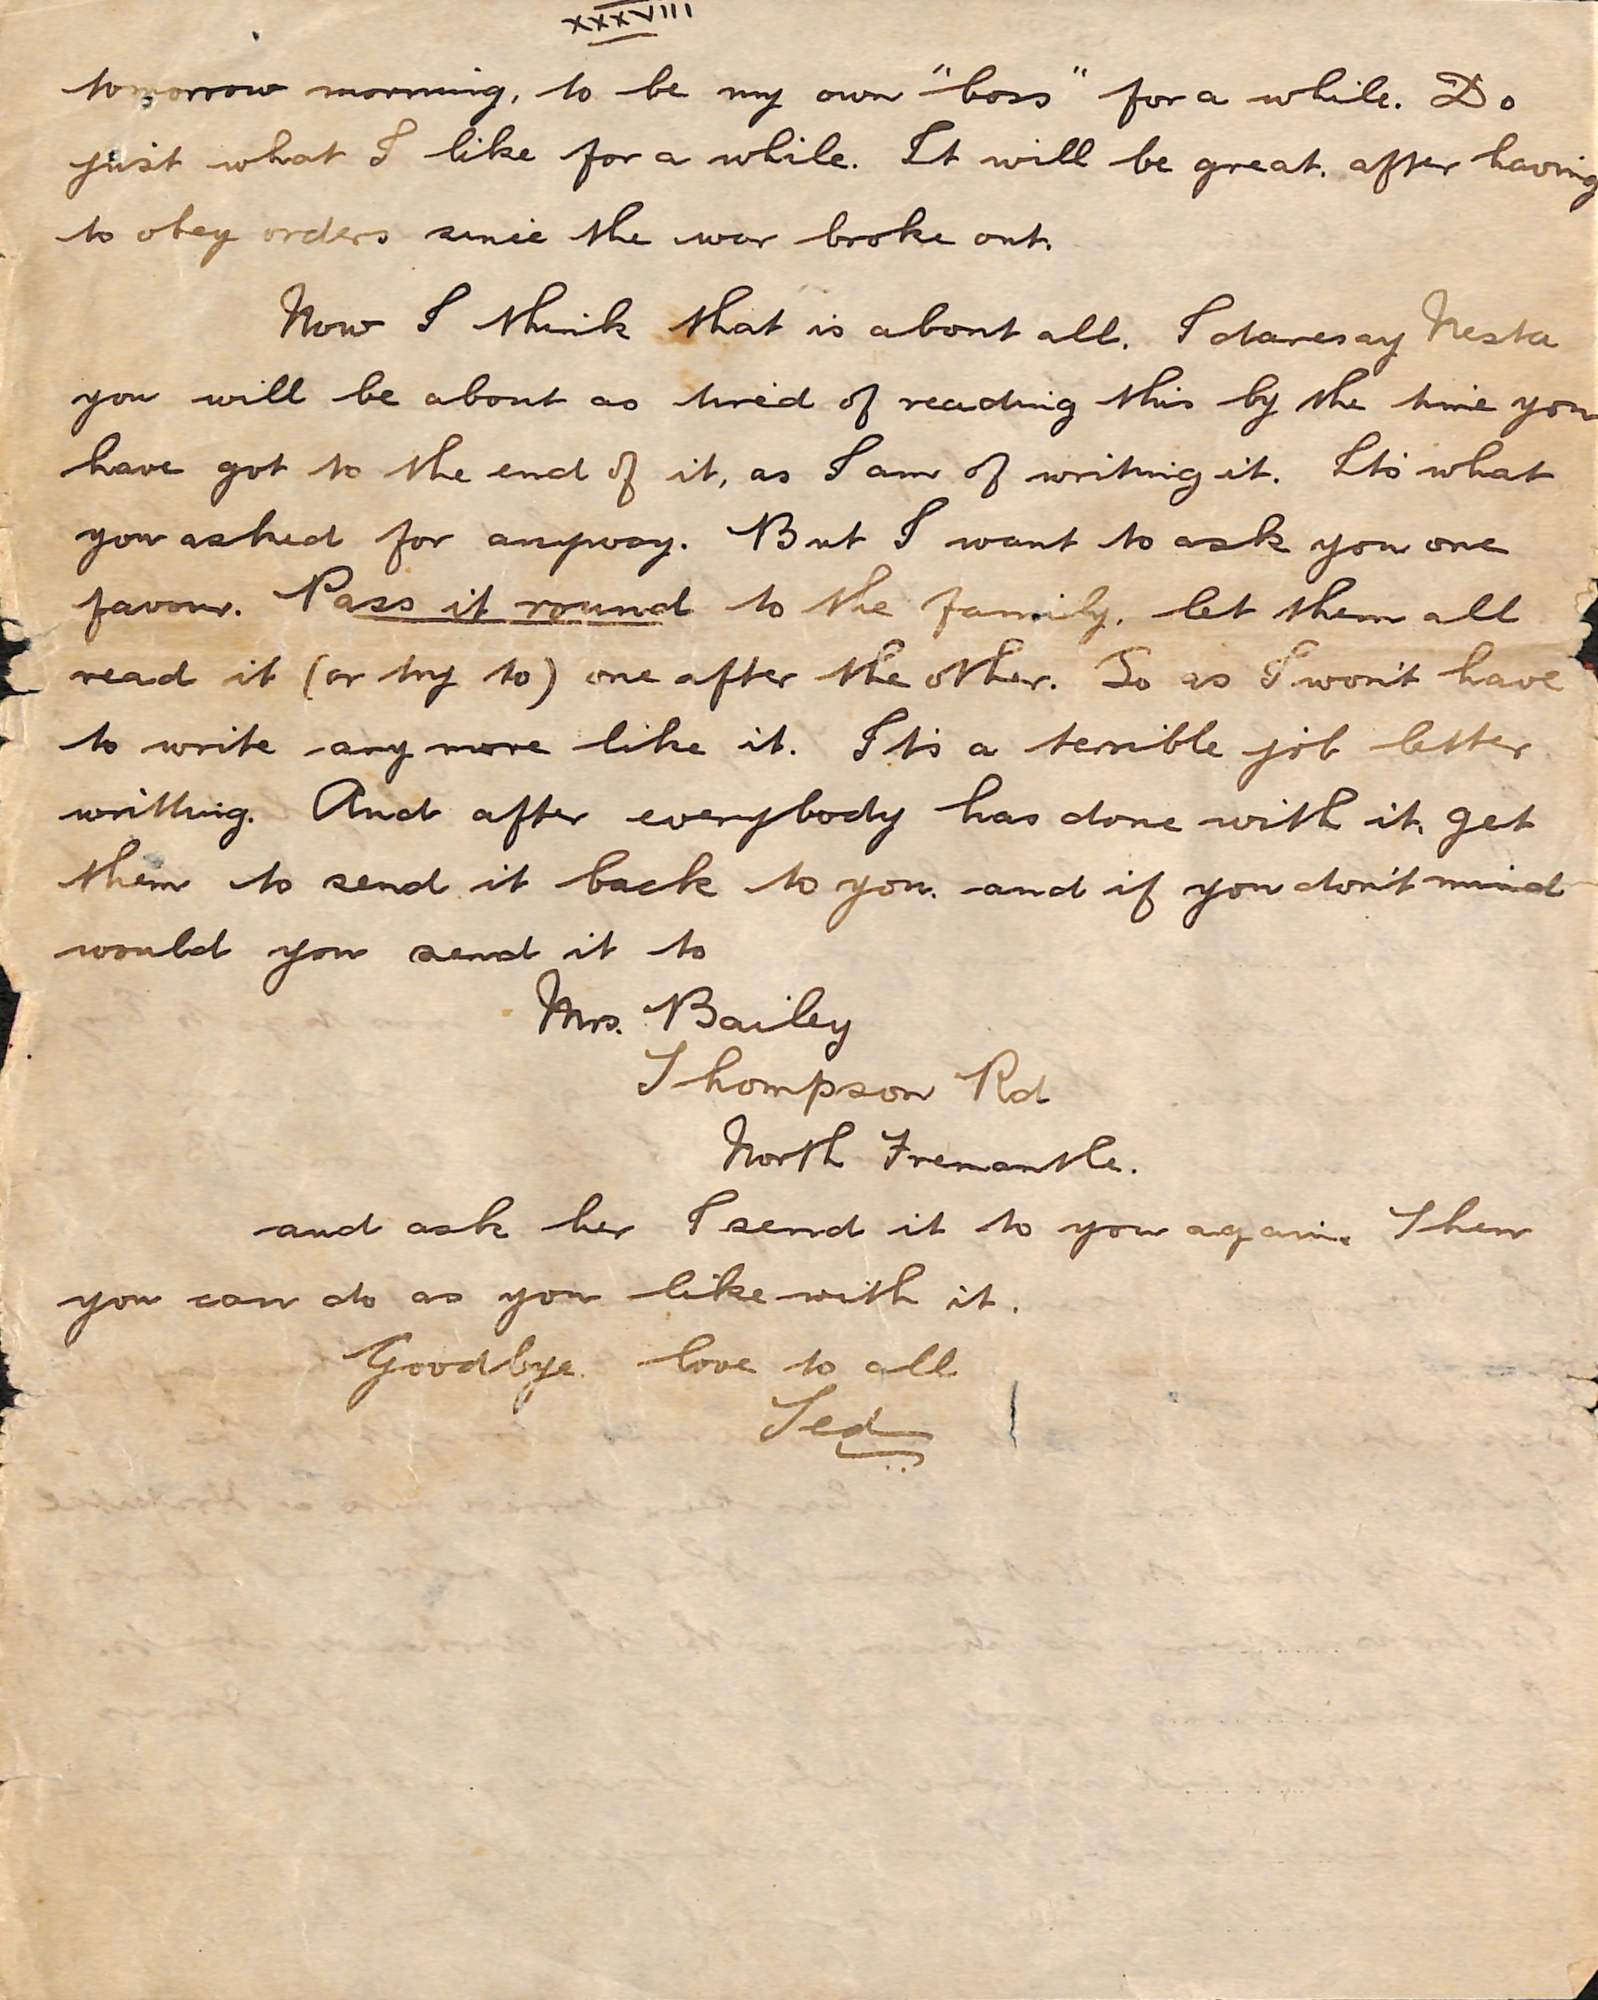 XXXVIII
tomorrow morning, to be my own "boss" for a while. Do
just what I like for a while. It will be great, after having
to obey orders since the war broke out.
Now I think that is about all. I daresay Nesta
you will be about as tired of reading this by the time you
have got to the end of it, as I am of writing it. Its what
you asked for anyway. But I want to ask you one
favour. Pass it round to the family, let them all
read it (or try to) one after the other. So as I won't have
to write any more like it. It's a terrible job letter
writting. And after everybody has done with it, get
them to send it back to you. and if you don't mind
would you send it to
Mrs. Bailey
Thompson Rd
North Fremantle.
and ask her I send it to you again. Then
you can do as you like with it.
Goodbye. love to all
Ted